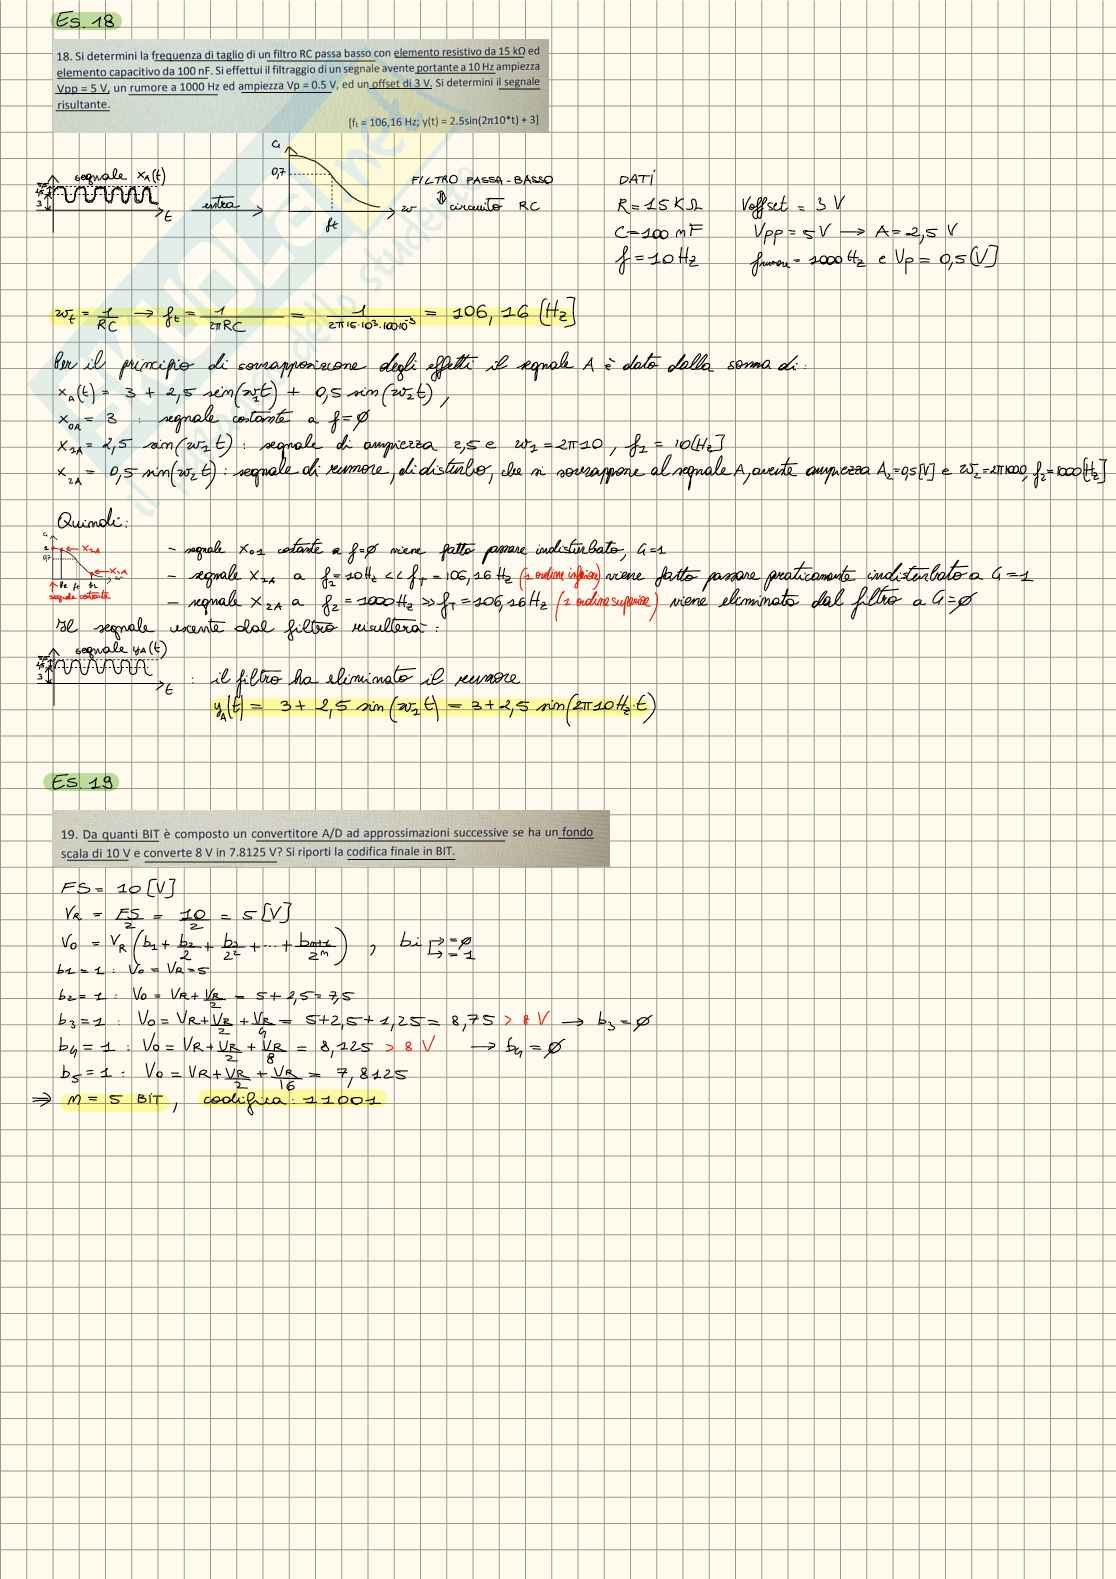 Es. 18
18. Si determini la frequenza di taglio di un filtro RC passa basso con elemento resistivo da 15 kΩ ed
elemento capacitivo da 100 nF. Si effettui il filtraggio di un segnale avente portante a 10 Hz ampiezza
Vpp = 5 V, un rumore a 1000 Hz ed ampiezza Vp = 0.5 V, ed un offset di 3 V. Si determini il segnale
risultante.
[fₜ = 106,16 Hz; y(t) = 2.5sin(2π10*t) + 3]
segnale xA(t)
3
t
entra
G
0,7
ft
w
FILTRO PASSA-BASSO
circuito RC
DATI
R = 15 KΩ Voffset = 3 V
C = 100 nF Vpp = 5 V → A = 2,5 V
f = 10 Hz frumore = 1000 Hz e Vp = 0,5 [V]
wt = 1/RC → ft = 1/2πRC = 1/2π15·10³·100·10⁻⁹ = 106,16 [Hz]
Per il principio di sovrapposizione degli effetti il segnale A è dato dalla somma di:
xA(t) = 3 + 2,5 sin(w1t) + 0,5 sin(w2t),
x0A = 3 : segnale costante a f=∅
x1A = 2,5 sin(w1t) : segnale di ampiezza 2,5 e w1 = 2π10, f1 = 10[Hz]
x2A = 0,5 sin(w2t) : segnale di rumore, di disturbo, che si sovrappone al segnale A, avente ampiezza A2=0,5[V] e w2=2π1000, f2=1000[Hz]
Quindi:
G
1
0,7
x1A
x2A
ft
segnale costante
- segnale x01 costante a f=∅ viene fatto passare indisturbato, G=1
- segnale x1A a f1 = 10Hz << fT = 106,16 Hz (1 ordine inferiore) viene fatto passare praticamente indisturbato a G = 1
- segnale x2A a f2 = 1000 Hz >> fT = 106,16 Hz (1 ordine superiore) viene eliminato dal filtro a G = ∅
Il segnale uscente dal filtro risulterà:
segnale yA(t)
3
t
: il filtro ha eliminato il rumore
yA(t) = 3 + 2,5 sin(w1t) = 3 + 2,5 sin(2π10Hz·t)
Es. 19
19. Da quanti BIT è composto un convertitore A/D ad approssimazioni successive se ha un fondo
scala di 10 V e converte 8 V in 7.8125 V? Si riporti la codifica finale in BIT.
FS = 10 [V]
VR = FS/2 = 10/2 = 5 [V]
Vo = VR (b1 + b2/2 + b3/2² + ... + bn+1/2ⁿ) , bi → = ∅ → = 1
b1 = 1 : Vo = VR = 5
b2 = 1 : Vo = VR + VR/2 = 5 + 2,5 = 7,5
b3 = 1 : Vo = VR + VR/2 + VR/4 = 5+2,5+1,25 = 8,75 > 8 V → b3 = ∅
b4 = 1 : Vo = VR + VR/2 + VR/8 = 8,125 > 8 V → b4 = ∅
b5 = 1 : Vo = VR + VR/2 + VR/16 = 7,8125
⇒ n = 5 BIT, codifica: 11001